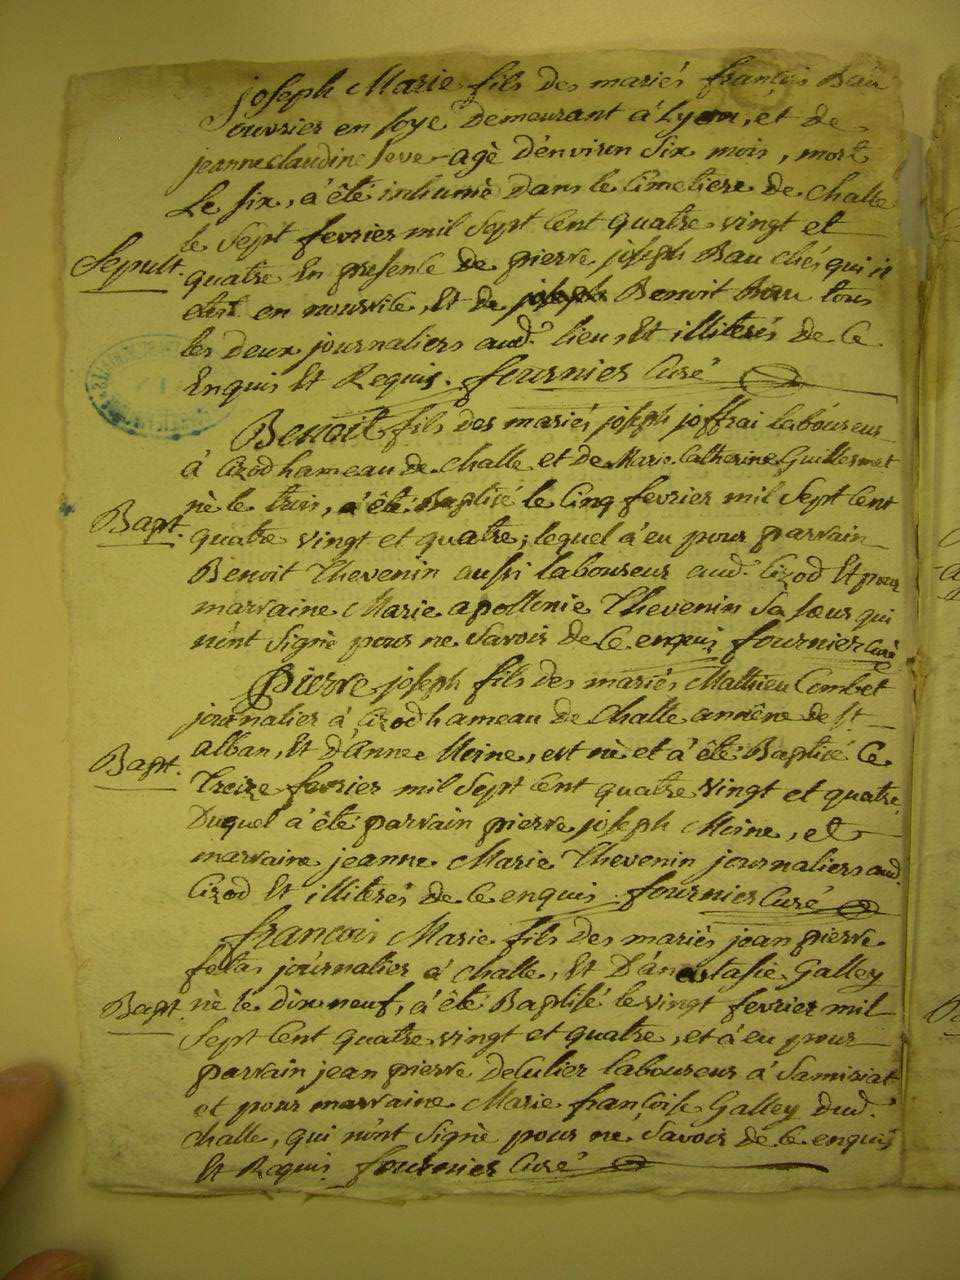 joseph Marie fils des mariés françois Bau
ouvrier en soye demeurant à Lyon, et de
jeanne claudine agé d'environ Six mois, mort
Le six, à été inhumé Dans le Cimetiere de Challe
le Sept fevrier mil Sept Cent quatre vingt et
Sepult. quatre En presence de pierre joseph Bau chés qui il
etoit en nourrice, Et de joseph Benoit Bau tous
les Deux journaliers aud. lieu Et illiterés de Ce
Enquis Et Requis. fournier Curé
Benoit fils des mariés joseph joffrai laboureur
à Cizod hameau de Challe et de Marie Catherine Guillermet
né le trois, à été Baptisé le Cinq fevrier mil Sept Cent
Bapt. quatre vingt et quatre; lequel à eu pour parrain
Benoit Thevenin aussi laboureur aud. Cizod Et pour
marraine Marie apollonie Thevenin Sa sœur qui
n'ont Signé pour ne Savoir de Ce enquis fournier Curé
Pierre joseph fils des mariés Mathieu Combet
journalier à Cizod hameau de Challe annéxe de St
alban, Et D'Anne Moine, est né et à été Baptisé Ce
Bapt. Treize fevrier mil Sept Cent quatre vingt et quatre
Duquel à été parrain pierre joseph Moine, et
marraine jeanne Marie Thevenin journaliers aud.
Cizod Et illiterés de Ce enquis. fournier Curé
françois Marie fils des mariés jean pierre
journalier à Challe, Et D'anastasie Galley
Bapt. né le dix neuf, à été Baptisé le vingt fevrier mil
Sept Cent quatre vingt et quatre, et à eu pour
parrain jean pierre laboureur à Samiriat
et pour marraine Marie françoise Galley dud.
Challe, qui n'ont Signé pour ne Savoir de Ce enquis
Et Requis. fournier Curé